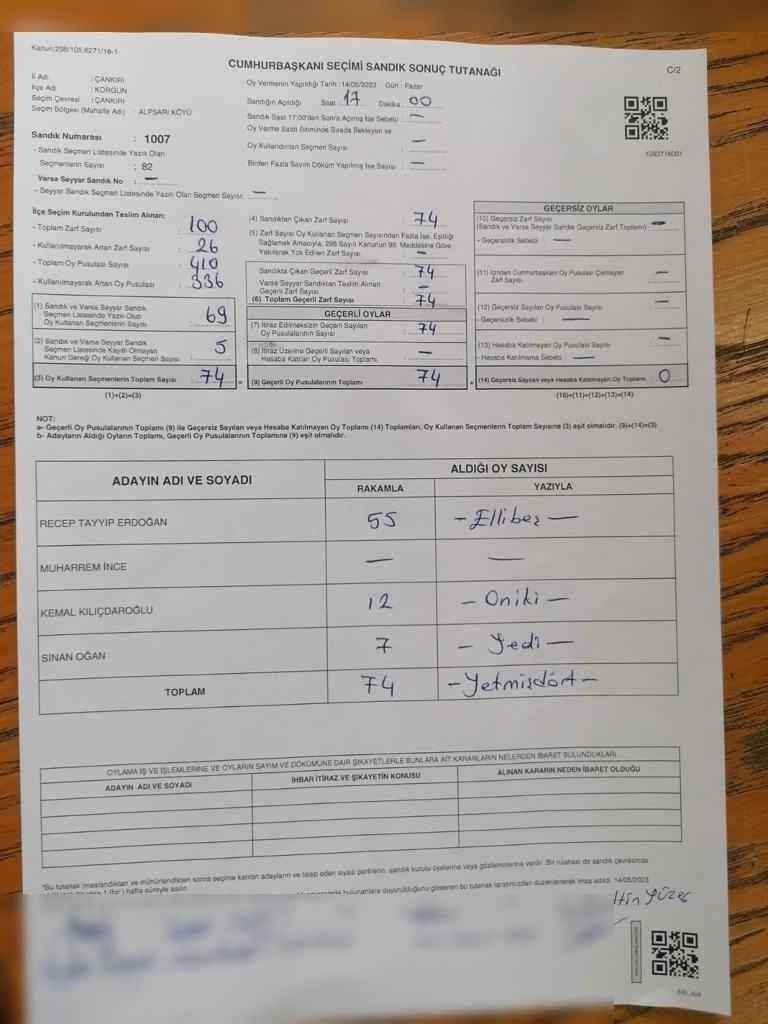 Kanun:298/105,6271/16-1
CUMHURBAŞKANI SEÇİMİ SANDIK SONUÇ TUTANAĞI
C/2
İl Adı : ÇANKIRI
İlçe Adı : KORGUN
Seçim Çevresi : ÇANKIRI
Seçim Bölgesi (Mahalle Adı) : ALPSARI KÖYÜ
Sandık Numarası : 1007
- Sandık Seçmen Listesinde Yazılı Olan
Seçmenlerin Sayısı : 82
Varsa Seyyar Sandık No : —
- Seyyar Sandık Seçmen Listesinde Yazılı Olan Seçmen Sayısı: —
Oy Vermenin Yapıldığı Tarih :14/05/2023 Gün : Pazar
Sandığın Açıldığı Saat : 17 Dakika : 00
Sandık Saat 17.00'den Sonra Açılmış İse Sebebi : —
Oy Verme Saati Bitiminde Sırada Bekleyen ve
Oy Kullandırılan Seçmen Sayısı : —
Birden Fazla Sayım Döküm Yapılmış İse Sayısı : —
İlçe Seçim Kurulundan Teslim Alınan:
- Toplam Zarf Sayısı : 100
- Kullanılmayarak Artan Zarf Sayısı : 26
- Toplam Oy Pusulası Sayısı : 410
- Kullanılmayarak Artan Oy Pusulası : 336
(1) Sandık ve Varsa Seyyar Sandık
Seçmen Listesinde Yazılı Olup
Oy Kullanan Seçmenlerin Sayısı : 69
(2) Sandık ve Varsa Seyyar Sandık
Seçmen Listesinde Kayıtlı Olmayan
Kanun Gereği Oy Kullanan Seçmen Sayısı : 5
(3) Oy Kullanan Seçmenlerin Toplam Sayısı : 74
(1)+(2)=(3)
(4) Sandıktan Çıkan Zarf Sayısı : 74
(5) Zarf Sayısı Oy Kullanan Seçmen Sayısından Fazla İse, Eşitliği
Sağlamak Amacıyla, 298 Sayılı Kanunun 98. Maddesine Göre
Yakılarak Yok Edilen Zarf Sayısı : —
Sandıkta Çıkan Geçerli Zarf Sayısı : 74
Varsa Seyyar Sandıktan Teslim Alınan
Geçerli Zarf Sayısı : —
(6) Toplam Geçerli Zarf Sayısı : 74
GEÇERLİ OYLAR
(7) İtiraz Edilmeksizin Geçerli Sayılan
Oy Pusulalarının Sayısı : 74
(8) İtiraz Üzerine Geçerli Sayılan veya
Hesaba Katılan Oy Pusulası Toplamı : —
(9) Geçerli Oy Pusulalarının Toplamı : 74
GEÇERSİZ OYLAR
(10) Geçersiz Zarf Sayısı : —
(Sandık ve Varsa Seyyar Sandık Geçersiz Zarf Toplamı)
- Geçersizlik Sebebi : —
(11) İçinden Cumhurbaşkanı Oy Pusulası Çıkmayan
Zarf Sayısı : —
(12) Geçersiz Sayılan Oy Pusulası Sayısı : —
- Geçersizlik Sebebi : —
(13) Hesaba Katılmayan Oy Pusulası Sayısı : —
- Hesaba Katılmama Sebebi : —
(14) Geçersiz Sayılan veya Hesaba Katılmayan Oy Toplamı : 0
(10)+(11)+(12)+(13)=(14)
NOT:
a- Geçerli Oy Pusulalarının Toplamı (9) ile Geçersiz Sayılan veya Hesaba Katılmayan Oy Toplamı (14) Toplamları, Oy Kullanan Seçmenlerin Toplam Sayısına (3) eşit olmalıdır. (9)+(14)=(3)
b- Adayların Aldığı Oyların Toplamı, Geçerli Oy Pusulalarının Toplamına (9) eşit olmalıdır.
ADAYIN ADI VE SOYADI ALDIĞI OY SAYISI
RAKAMLA YAZIYLA
RECEP TAYYİP ERDOĞAN 55 - Ellibeş —
MUHARREM İNCE — —
KEMAL KILIÇDAROĞLU 12 - Oniki —
SİNAN OĞAN 7 - Yedi —
TOPLAM 74 - Yetmişdört -
OYLAMA İŞ VE İŞLEMLERİNE VE OYLARIN SAYIM VE DÖKÜMÜNE DAİR ŞİKAYETLERLE BUNLARA AİT KARARLARIN NELERDEN İBARET BULUNDUKLARI
ADAYIN ADI VE SOYADI İHBAR İTİRAZ VE ŞİKAYETİN KONUSU ALINAN KARARIN NEDEN İBARET OLDUĞU
*Bu tutanak imzalandıktan ve mühürlendikten sonra seçime katılan adayların ve talep eden siyasi partilerin, sandık kurulu üyelerine veya gözlemcilerine verilir. Bir nüshası da sandık çevresinde
bulunanlara duyurulduğunu gösteren bu tutanak tarafımızdan düzenlenerek imza edildi. 14/05/2023